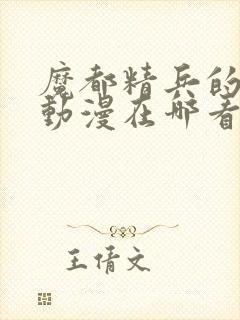 魔都精兵的
動漫在哪看
王倩文